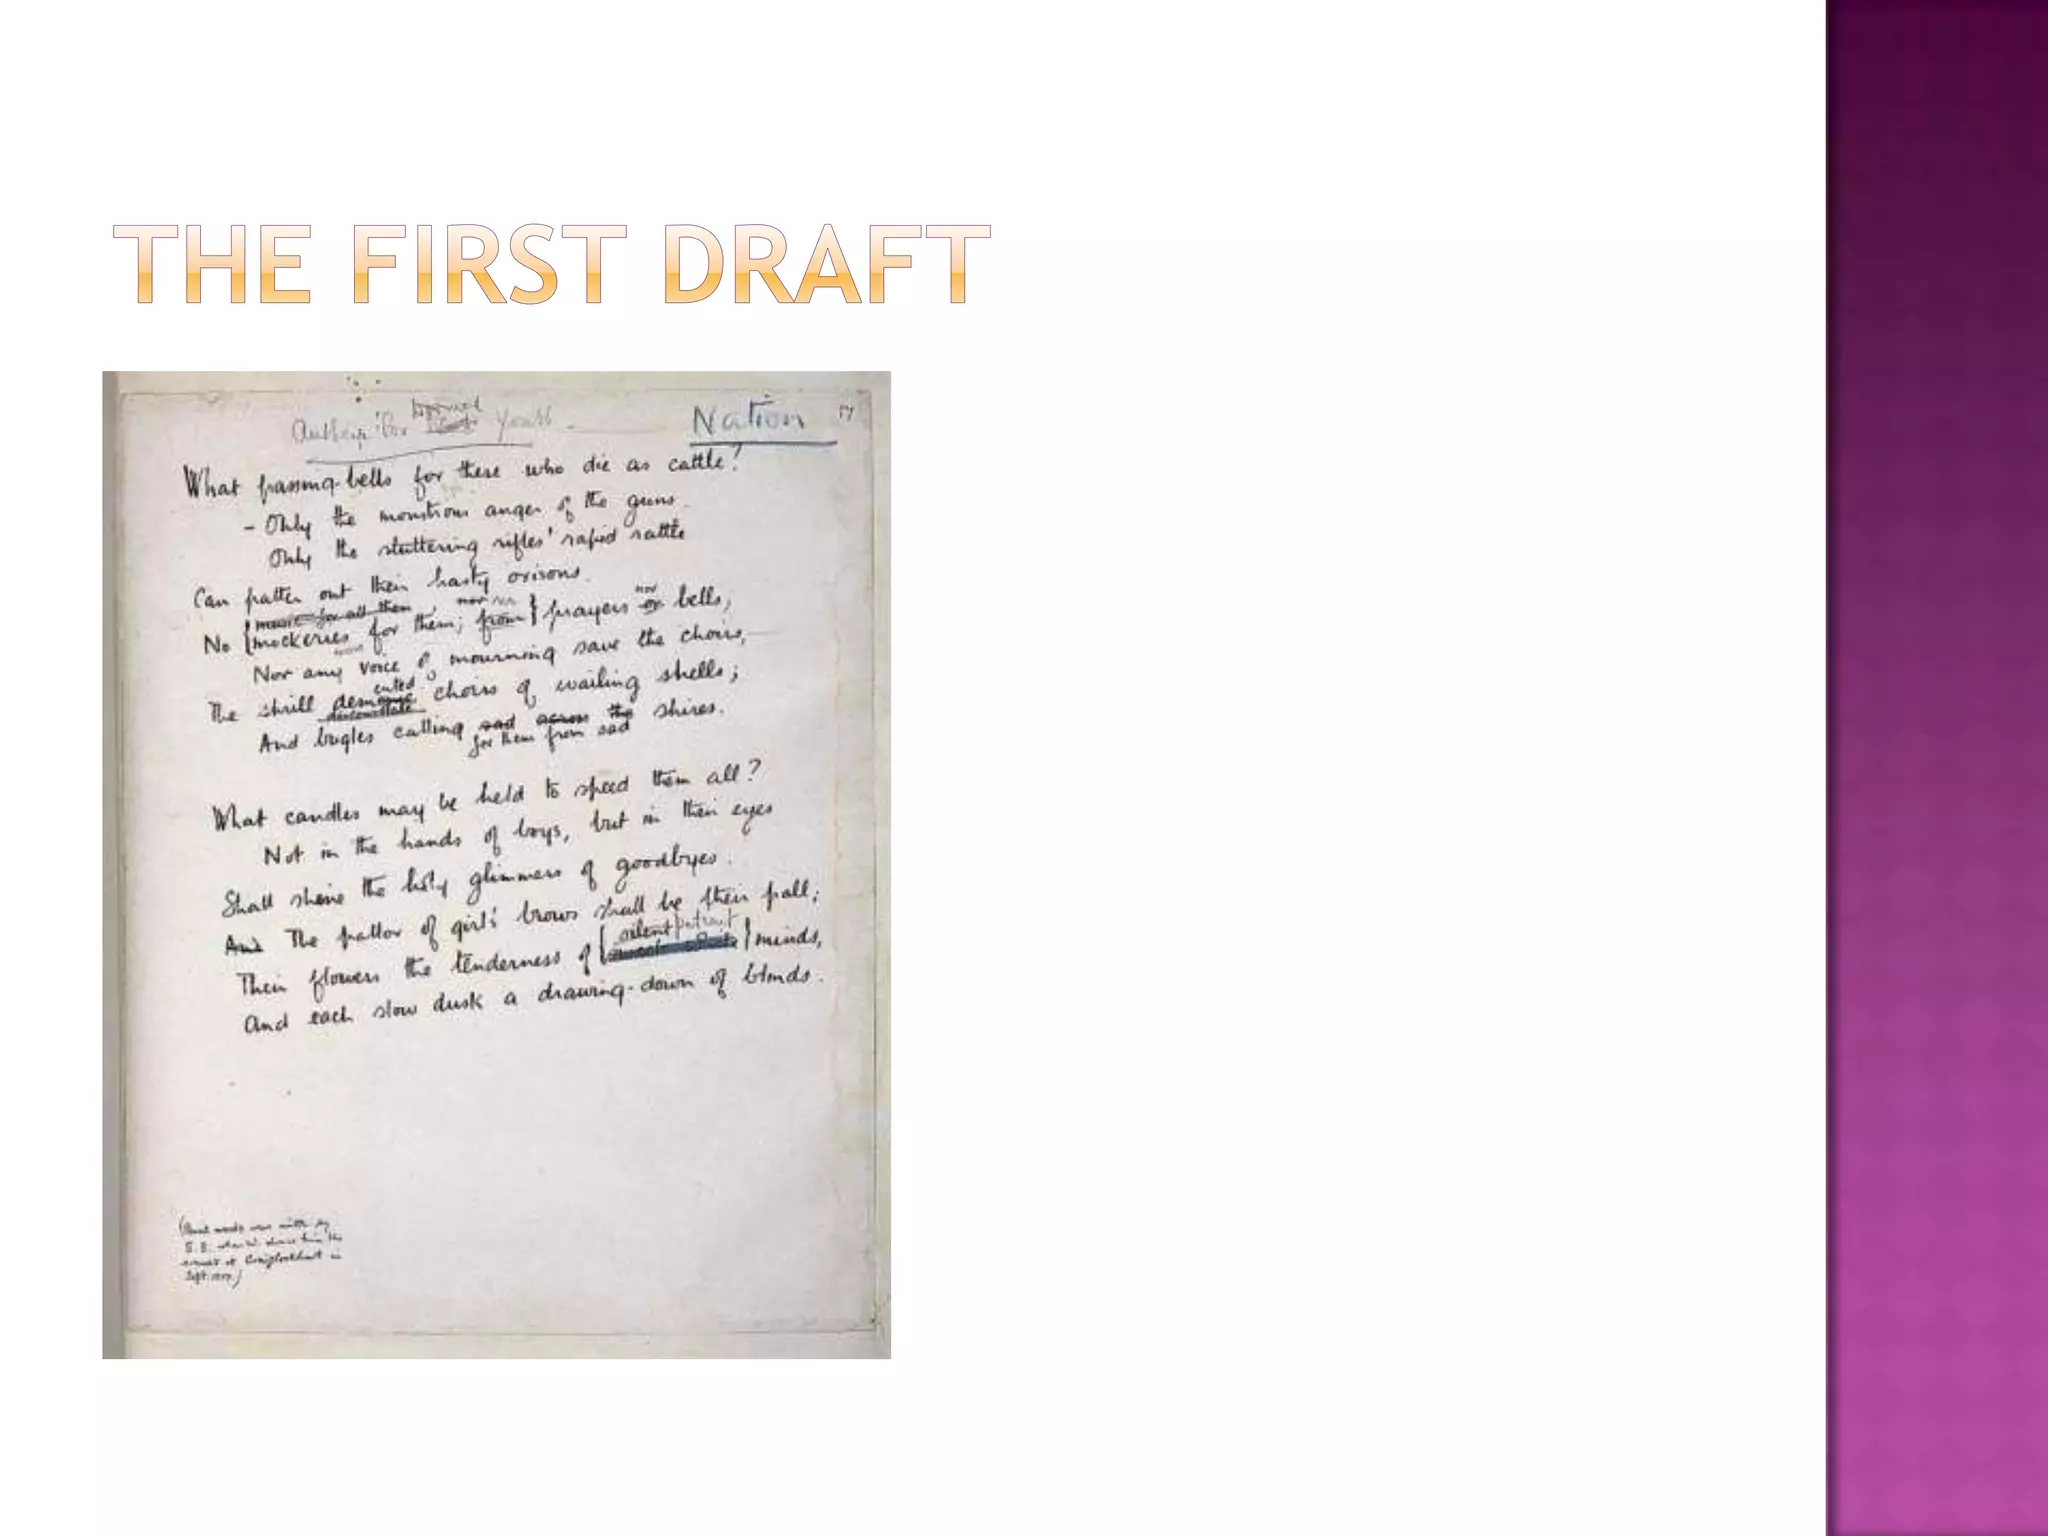 THE FIRST DRAFT
Anthem for Doomed Youth. Nation 17
What passing-bells for these who die as cattle?
- Only the monstrous anger of the guns.
Only the stuttering rifles' rapid rattle
Can patter out their hasty orisons.
music for all them nor no nor
No mockeries for them; from prayers or bells,
Nor any voice of mourning save the choirs,
The shrill demented choirs of wailing shells;
disconsolate
And bugles calling sad across the shires.
for them from sad
What candles may be held to speed them all?
Not in the hands of boys, but in their eyes
Shall shine the holy glimmers of goodbyes.
And The pallor of girls' brows shall be their pall;
silent patient
Their flowers the tenderness of minds,
And each slow dusk a drawing-down of blinds.
(Pencil words were written by
S.S. when W. showed him the
sonnet at Craiglockhart in
Sept. 1917.)